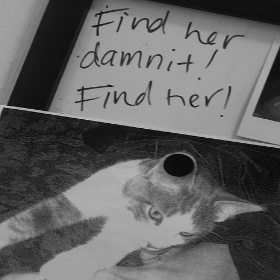 Find her
damnit!
Find her!